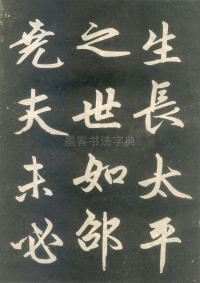 生長太平
之世如邵
堯夫未必
墨客书法字典